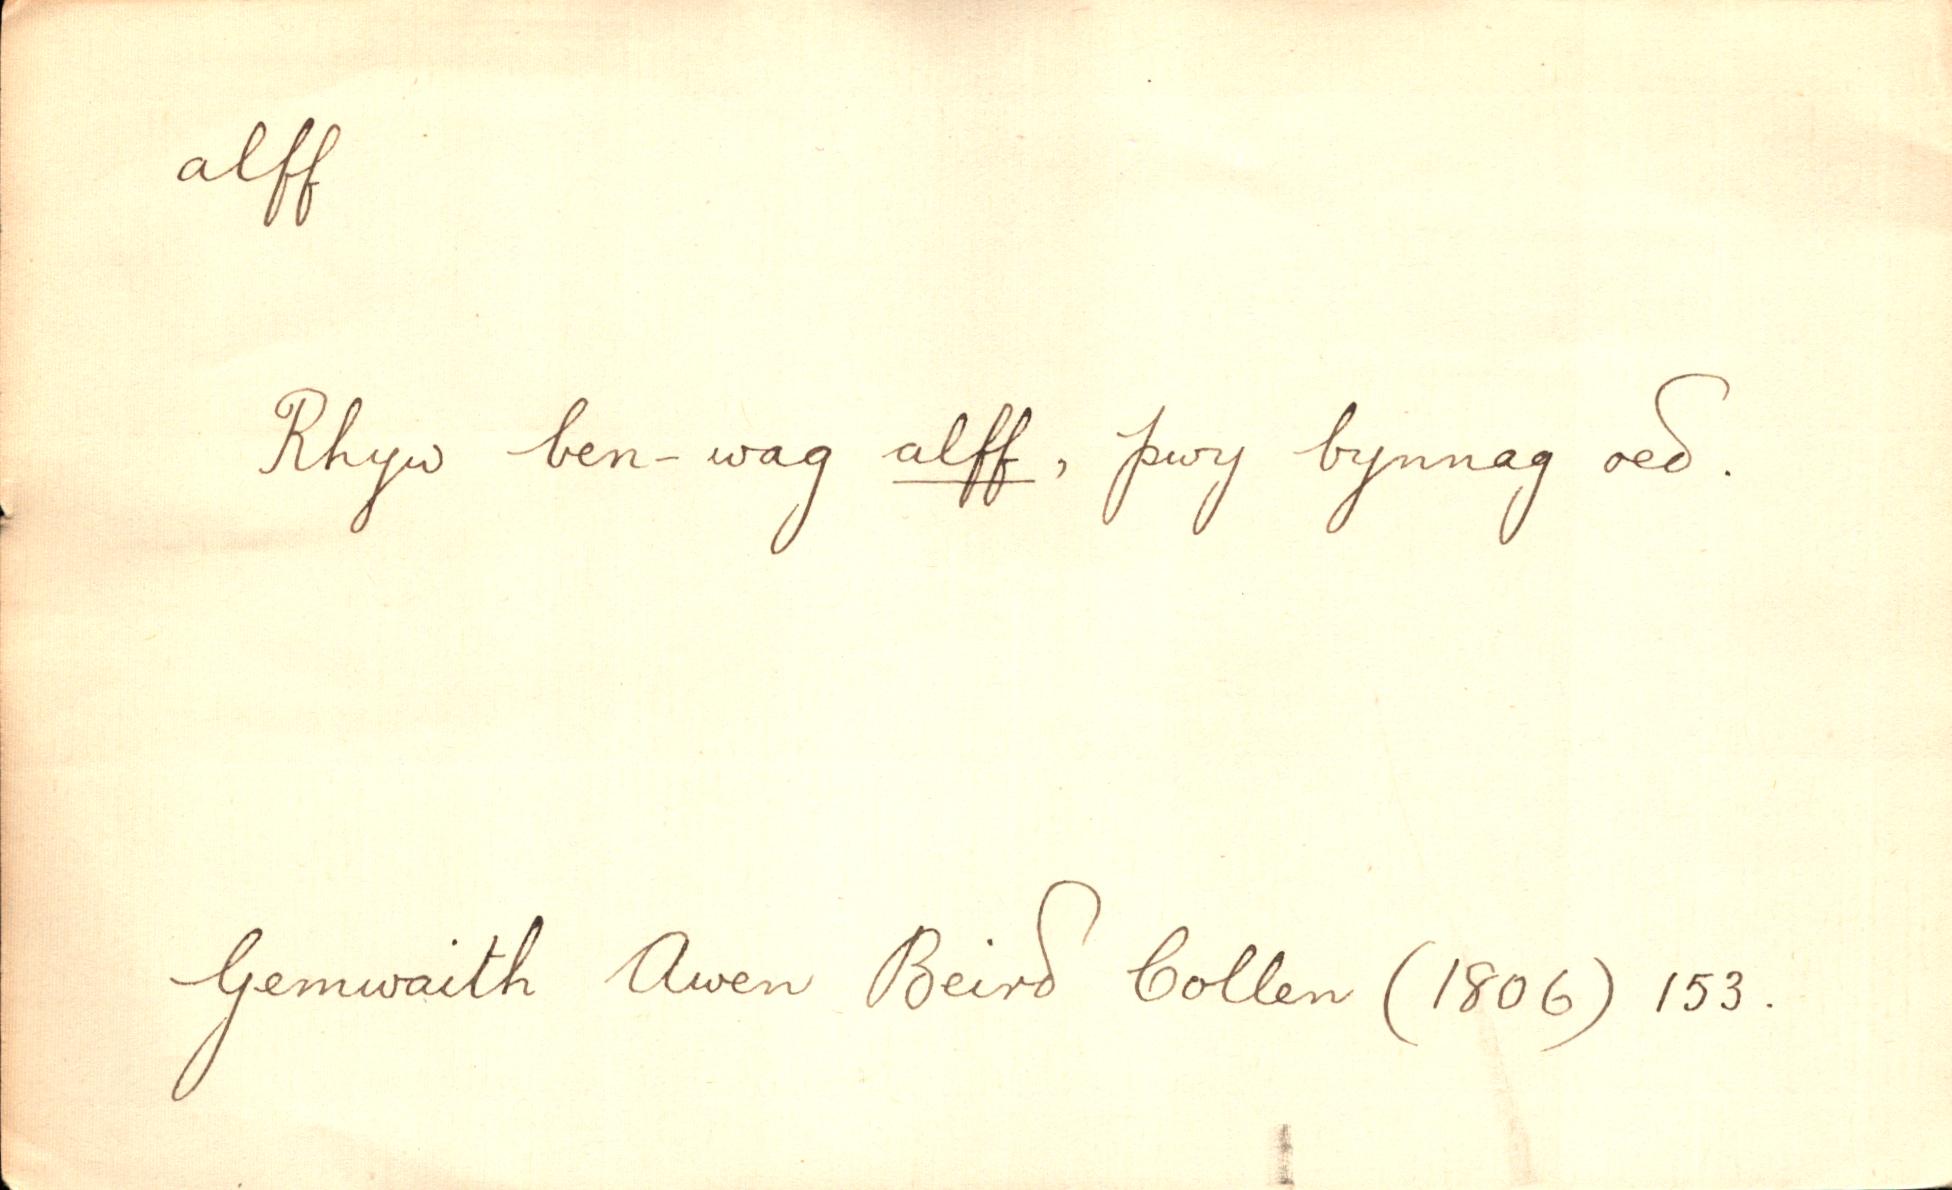 alff
Rhyw ben-wag alff, pwy bynnag oeδ.
Gemwaith Awen Beirδ Collen (1806) 153.